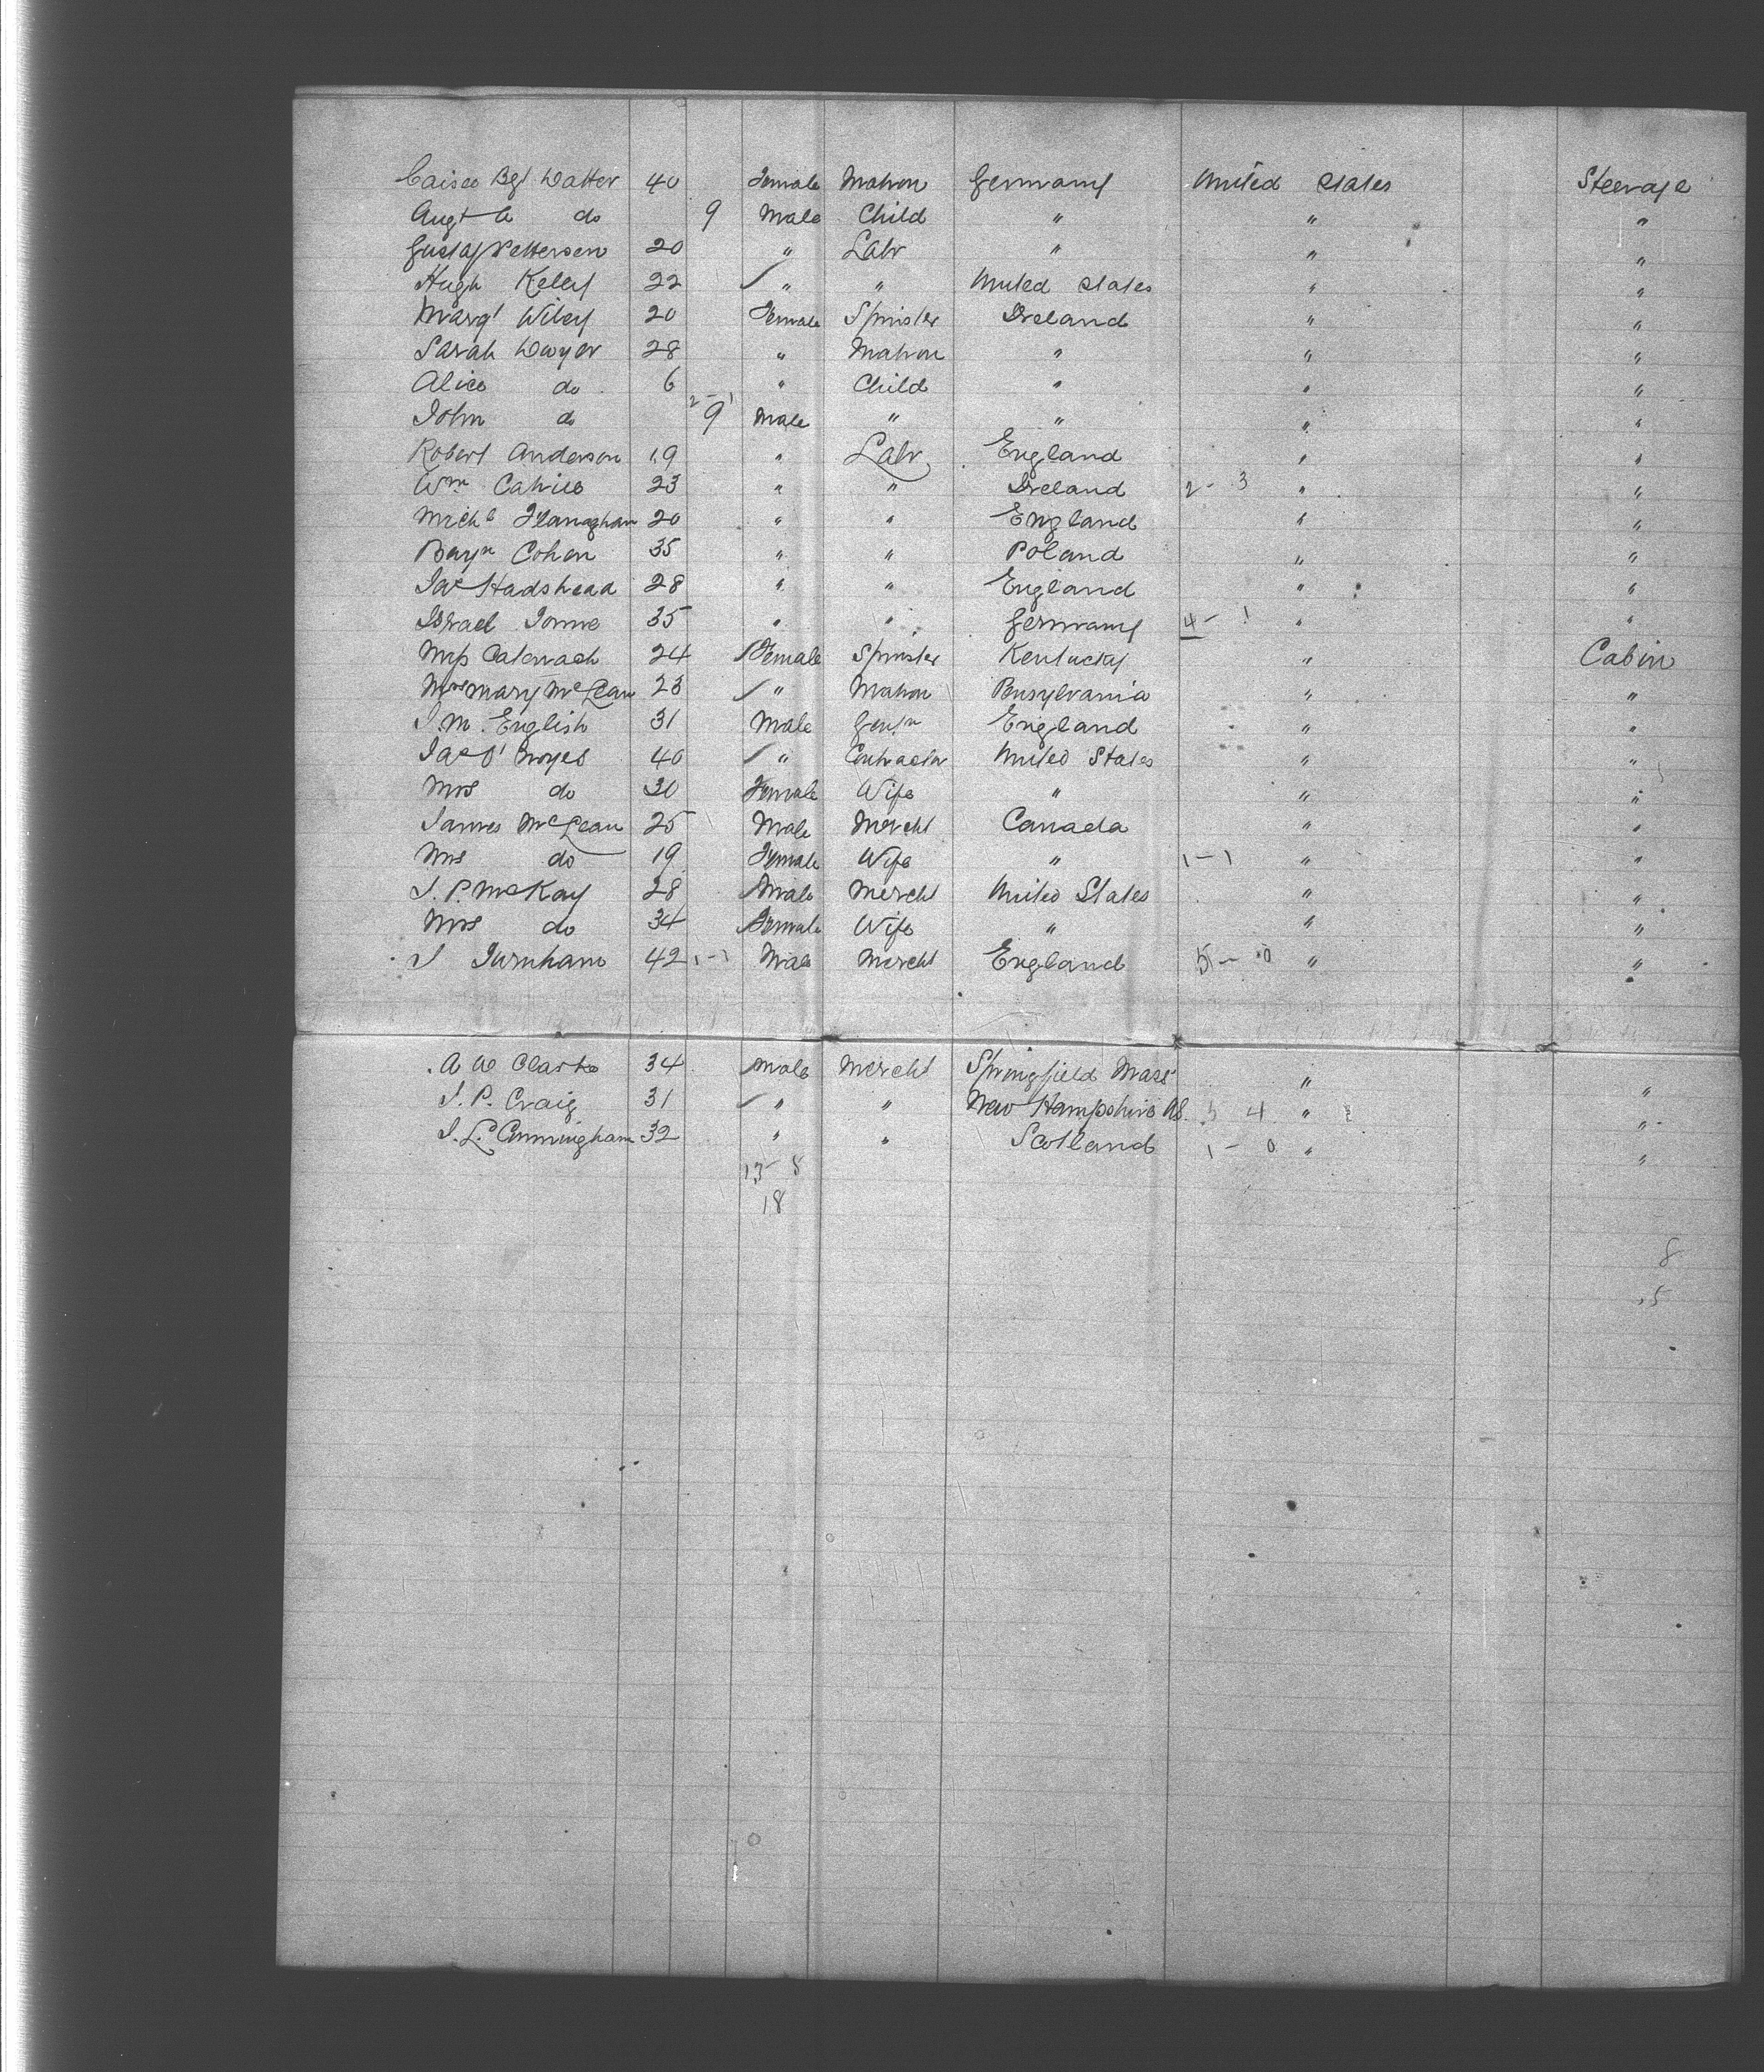 Caisa Bgt Datter 40 Female Matron Germany United States Steerage
Augt C do 9 Male Child " " "
Gustaf Petterson 20 " Labr " " "
Hugh Kelly 22 / " " United States " "
Margt Wiley 20 Female Spinster Ireland " "
Sarah Dwyer 28 " Matron " " "
Alice do 6 " Child " " "
2-1
John do 9 Male " " " "
Robert Anderson 19 " Labr England " "
Wm 23 " " Ireland 2- 3 " "
Michl Flanaghan 20 " " England " "
Benjn Cohen 35 " " Poland " "
Jas Hadshead 28 " " England " "
Israel 35 " " Germany 4- 1 " "
Miss 24 / Female Spinster Kentucky " Cabin
Mrs Mary McLean 23 / " Matron Pensylvania " "
J. M. English 31 Male Gentn England " "
Jas Noyes 40 / " Contractor United States " "
Mrs do 30 Female Wife " " "
James McLean 25 Male Mercht Canada " "
Mrs do 19 Female Wife " 1-1 " "
J. P. McKay 28 / Male Mercht United States " "
Mrs do 34 / Female Wife " " "
J Turnham 42 1-1 Male Mercht England 5- 0 " "
A W Clarke 34 / Male Mercht Springfield Mass " "
J. P. Craig 31 / " " New Hampshire US 4 " "
J. L. Cunningham 32 " " Scotland 1- 0 " "
13- 8
18
8
5